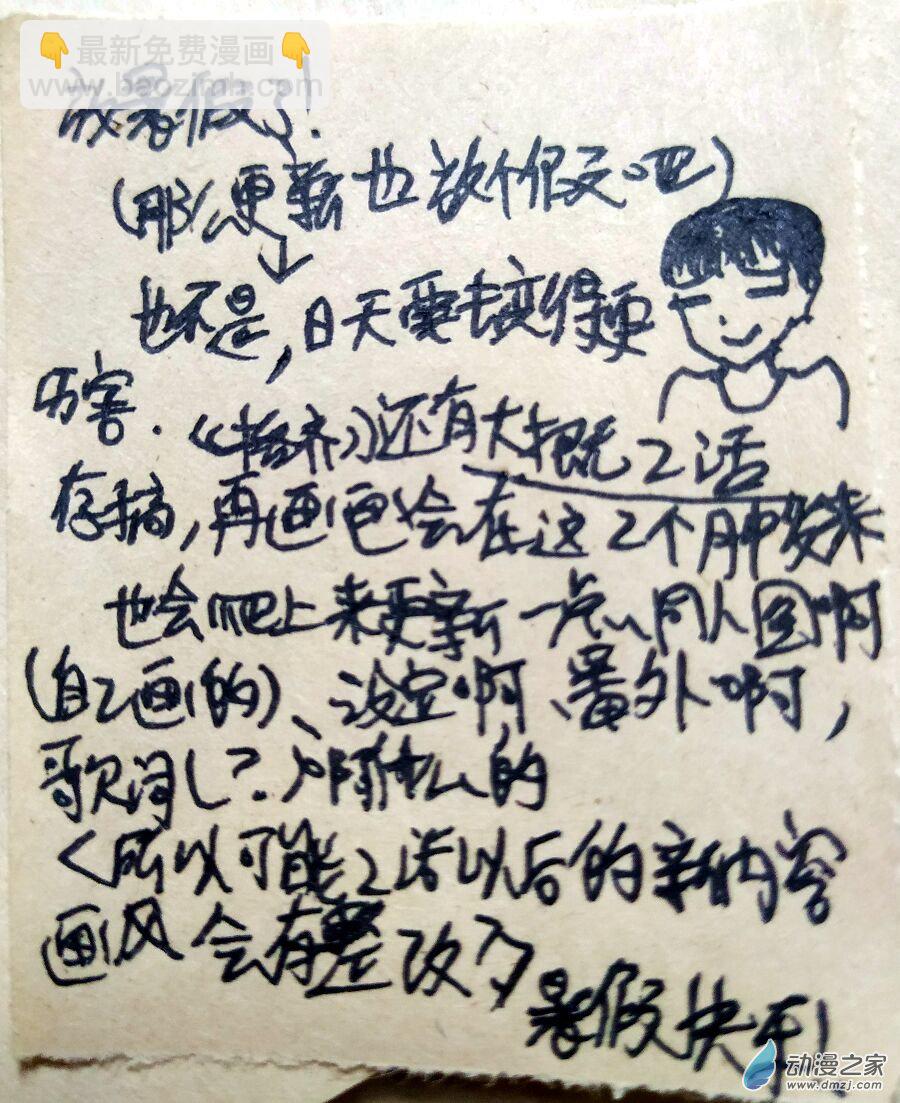 👇最新免费漫画👇
www.baozimh.com
放暑假了!
(那么更新也放个假吧)
也不是,日天要去变得更
厉害.《格齐》还有大概2话
存稿,再画也会在这2个月中发来
也会爬上来更新一点同人图啊
(自己画的)、设定啊、番外啊,
歌词(?)啊什么的
<所以可能2话以后的新内容
画风会有整改>
暑假快乐!
动漫之家
www.dmzj.com